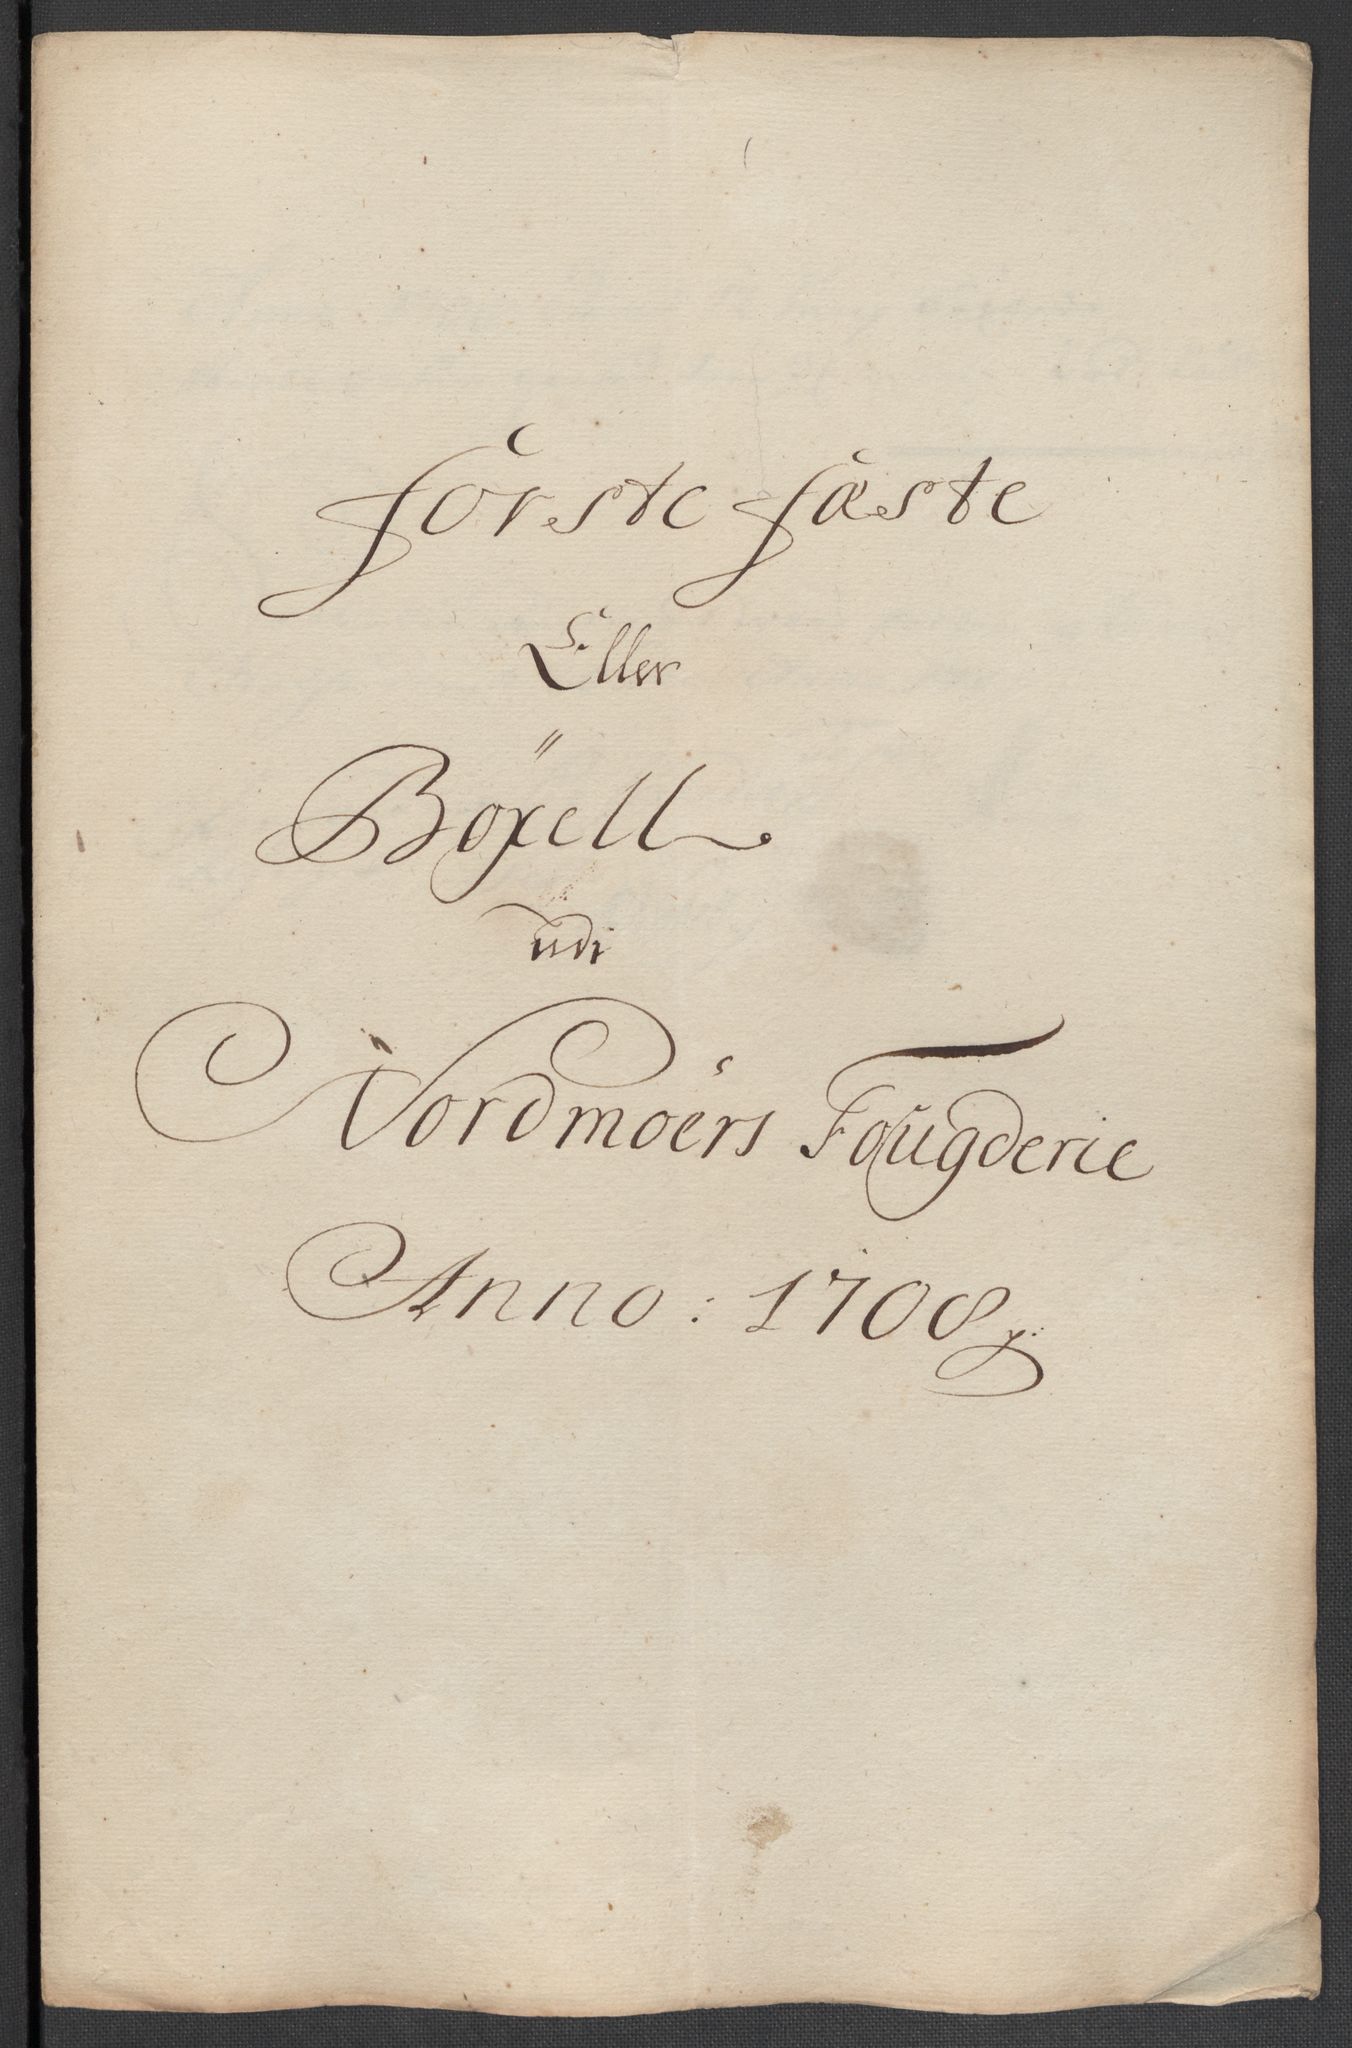 förste fæste
Eller
Böxell
udi
Nordmöers Fougderie
Anno: 1708